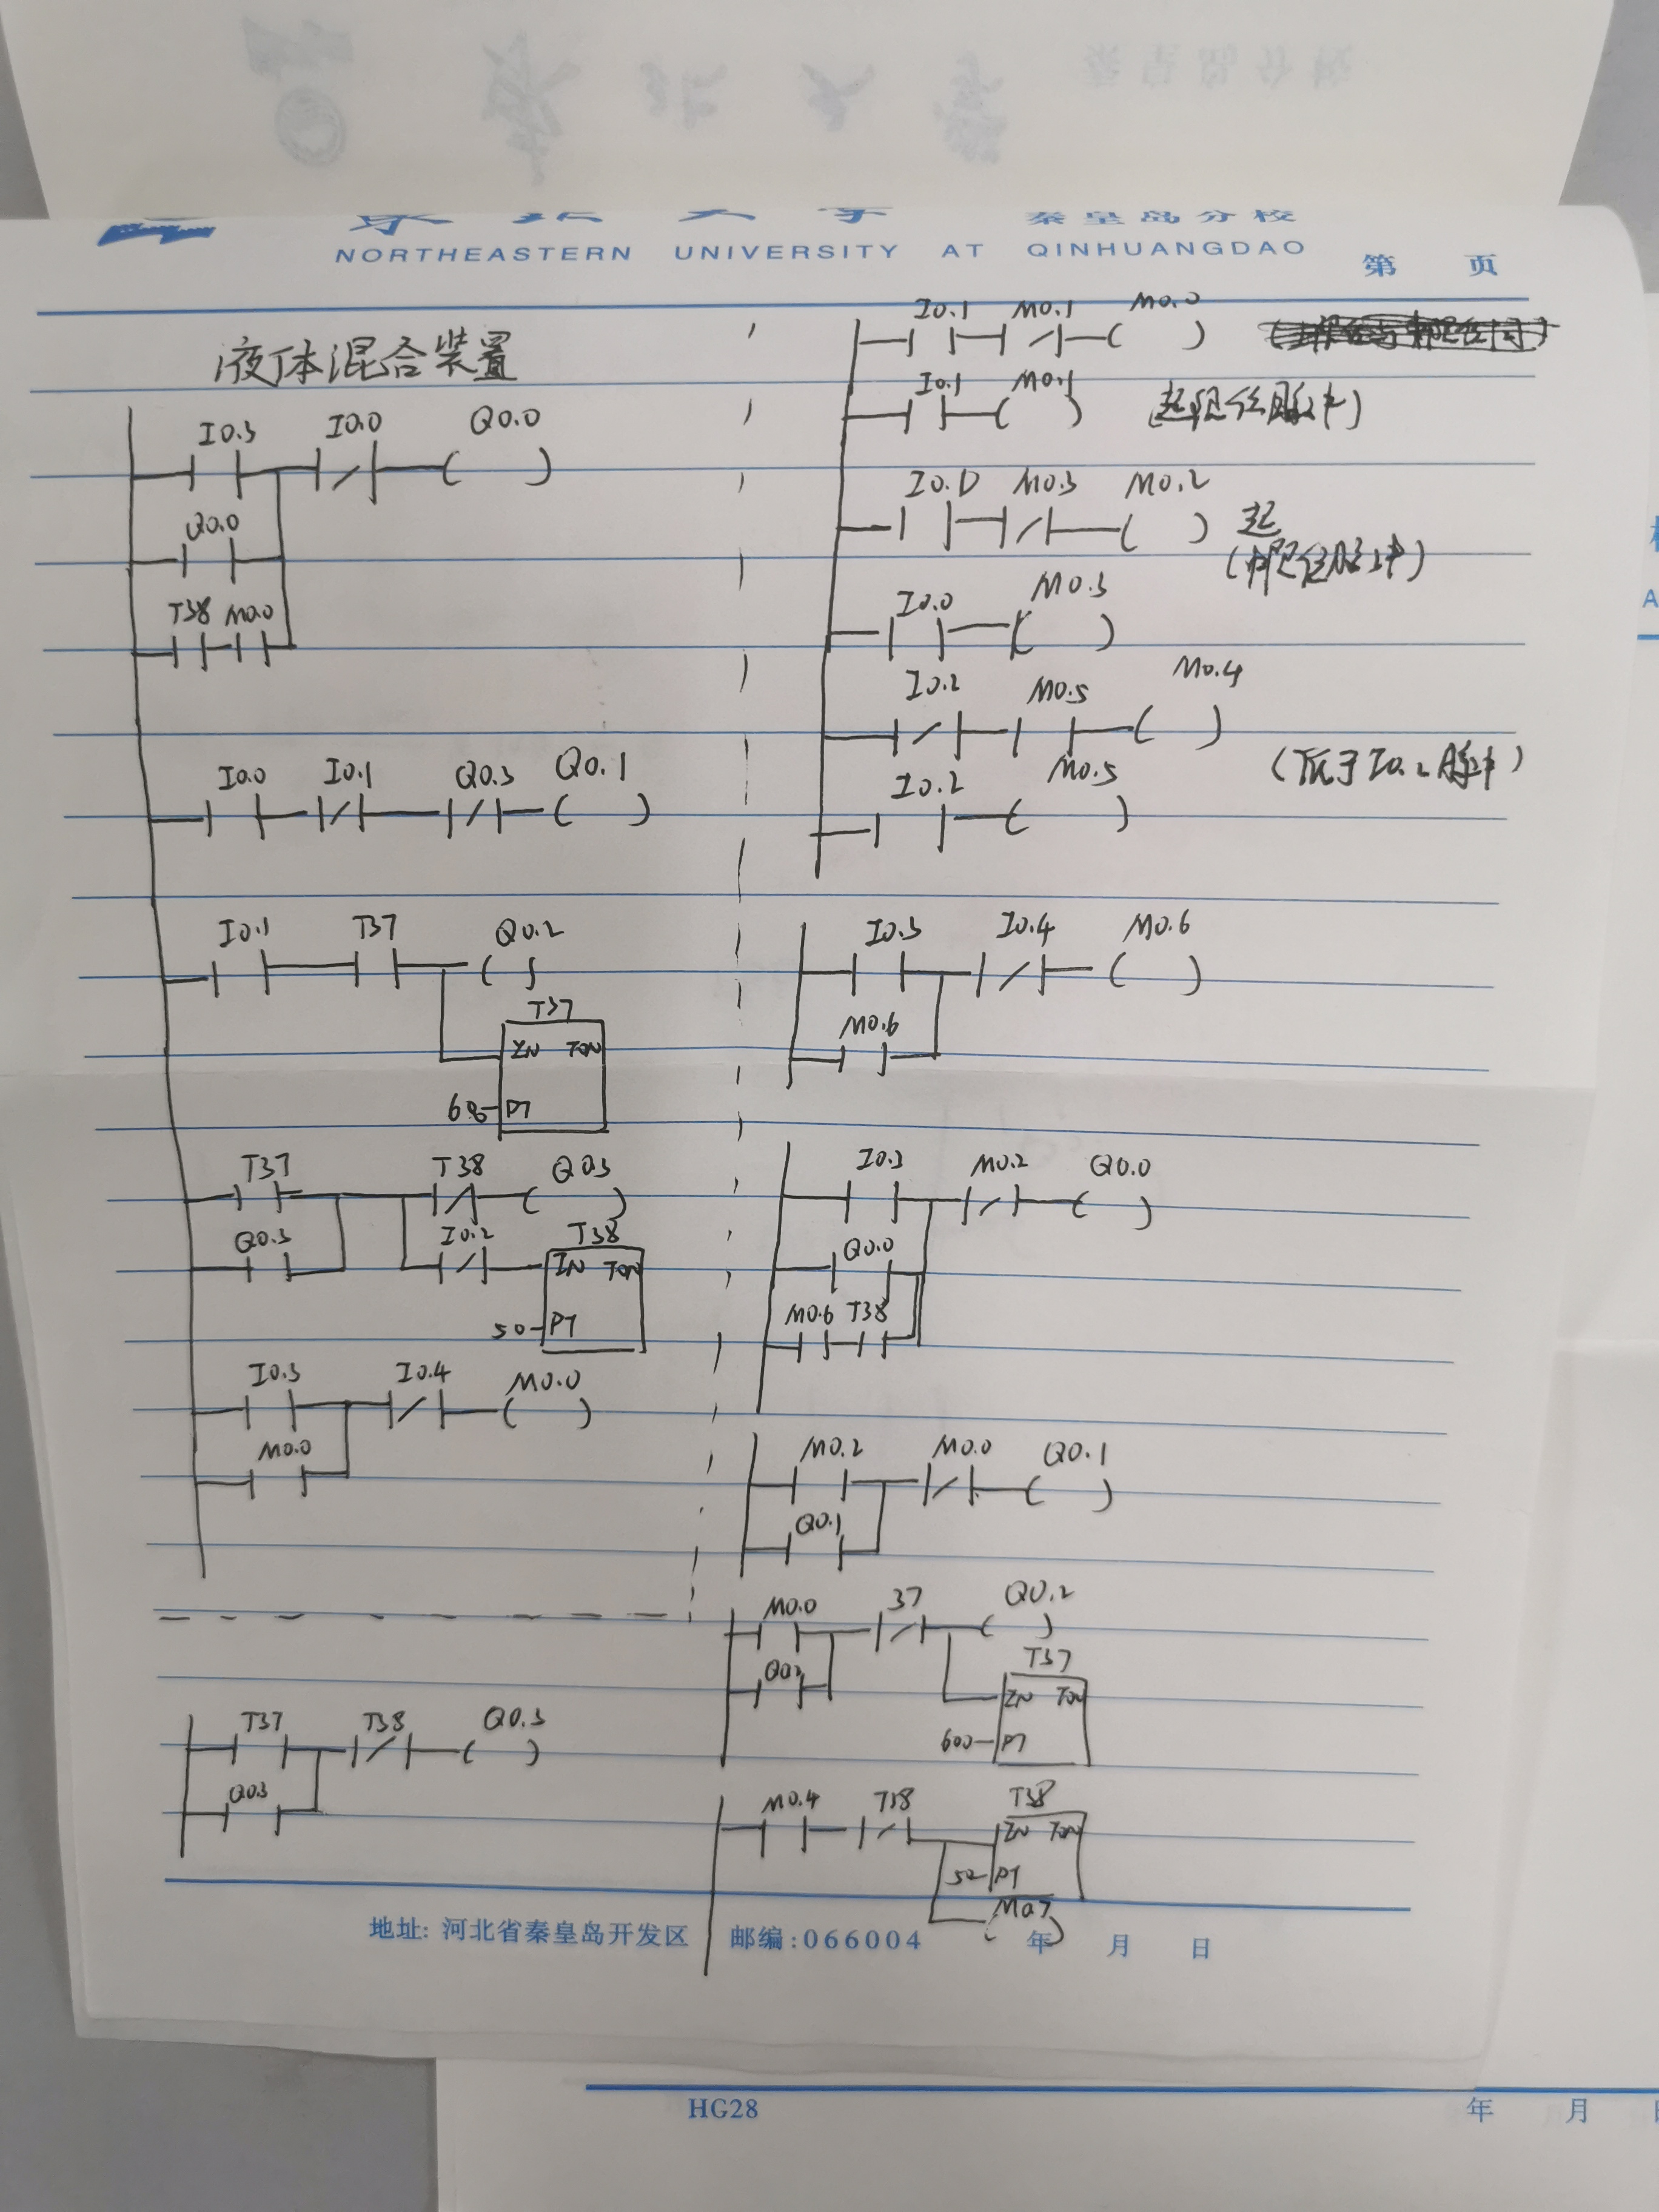 秦皇岛分校
NORTHEASTERN UNIVERSITY AT QINHUANGDAO
第 页
液体混合装置
I0.3 I0.0 Q0.0
Q0.0
T38 M0.0
I0.0 I0.1 Q0.3 Q0.1
I0.1 T37 Q0.2
T37
IN TON
PT
T37 T38 Q0.3
Q0.3 I0.2 T38
IN TON
50 PT
I0.3 I0.4 M0.0
M0.0
T37 T38 Q0.3
Q0.3
I0.1 M0.1 M0.0
I0.1 M0.1
I0.0 M0.3 M0.2
起
I0.0 M0.3
I0.2 M0.5 M0.4
(低于I0.2脉冲)
I0.2 M0.5
I0.3 I0.4 M0.6
M0.6
I0.3 M0.2 Q0.0
Q0.0
M0.6 T38
M0.2 M0.0 Q0.1
Q0.1
M0.0 37 Q0.2
Q0.2
T37
IN TON
600 PT
M0.4 T38 T38
IN TON
50 PT
M0.7
地址: 河北省秦皇岛开发区 邮编:066004 年 月 日
HG28 年 月